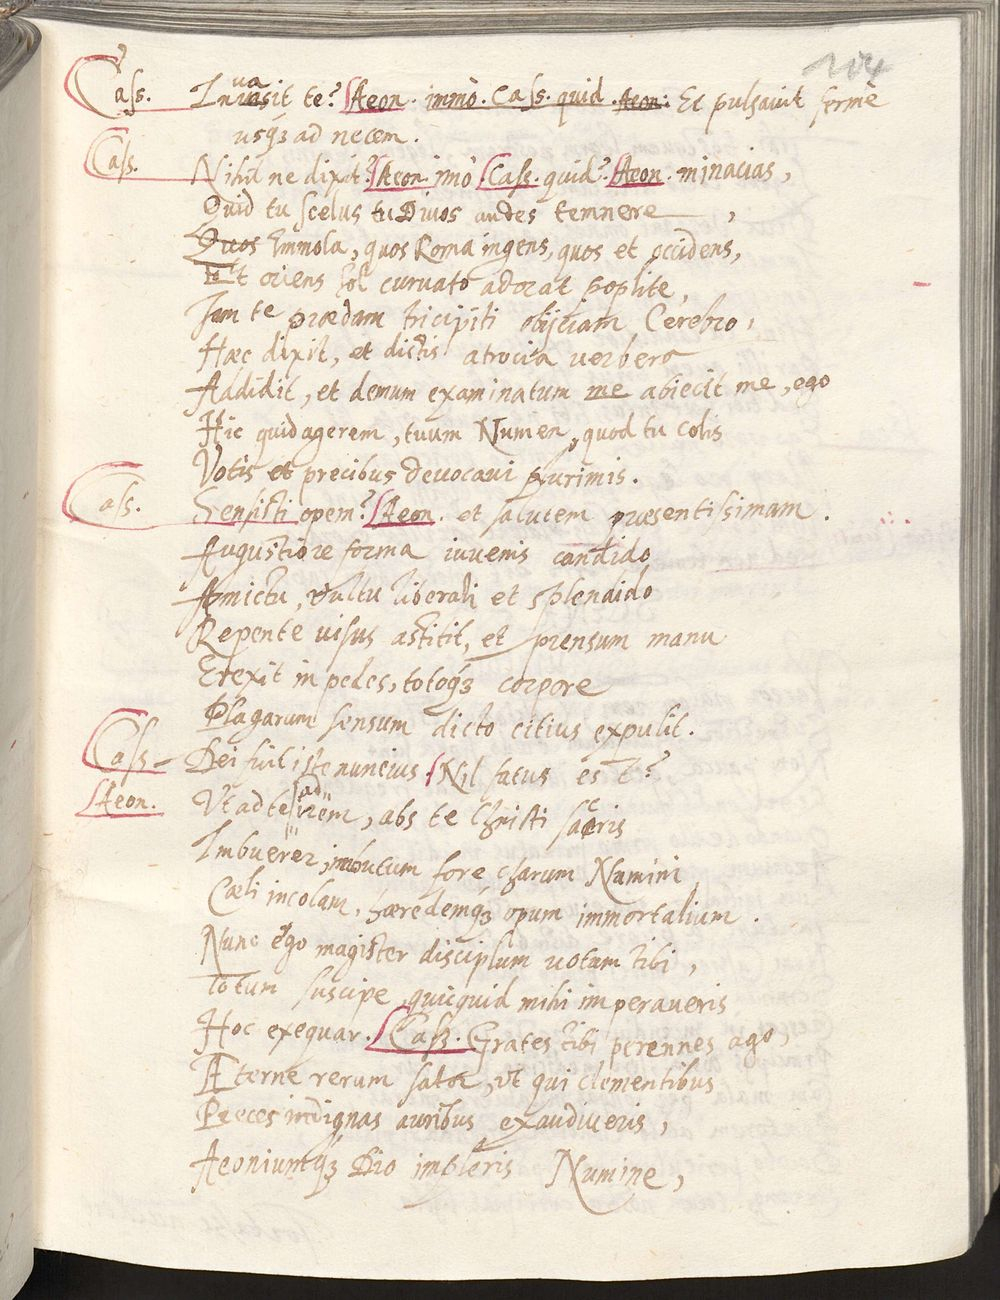 114
Cass. Invasit te? Aeon. immò. Cass. quid. Aeon: Et pulsavit fermè
usq3 ad necem.
Cass. Nihil ne dixit? Aeon. imò Cass. quid? Aeon. minacias,
Quid tu scelus tu Divos audes temnere,
Quos Immola, quos Roma ingens, quos et occidens,
Et oriens sol curuato adorat poplite,
Iam te praedam tricipiti obijciam Cerebro,
Haec dixit, et dictis atrocia verbera
Addidit, et demum examinatum me abiecit me, ego
Hic quid agerem, tuum Numen, quod tu colis
Votis et precibus devocavi plurimis.
Cass. Sensisti opem? Aeon. et salutem praesentissimam.
Augustiore forma iuvenis candido
Amictu, vultu liberali et splendido
Repente visus astitit, et prensum manu
Erexit in pedes, totoq3 corpore
Plagarum sensum dicto citius expulit.
Cass- Dei fuit iste nuncius, Nil fatus est?
Aeon. Ut ad te adirem, abs te Christi sacris
Imbuerer, imbutum fore charum Numini
Caeli incolam, haeredemq3 opum immortalium.
Nunc ego magister disciplum votum tibi,
Totum suscipe, quicquid mihi imperaveris
Hoc exequar. Cass. Grates tibi perennes ago,
AEterne rerum sator, ut qui clementibus
Preces indignas auribus exaudiveris,
Aeoniumq3 Dio impleris Numine,